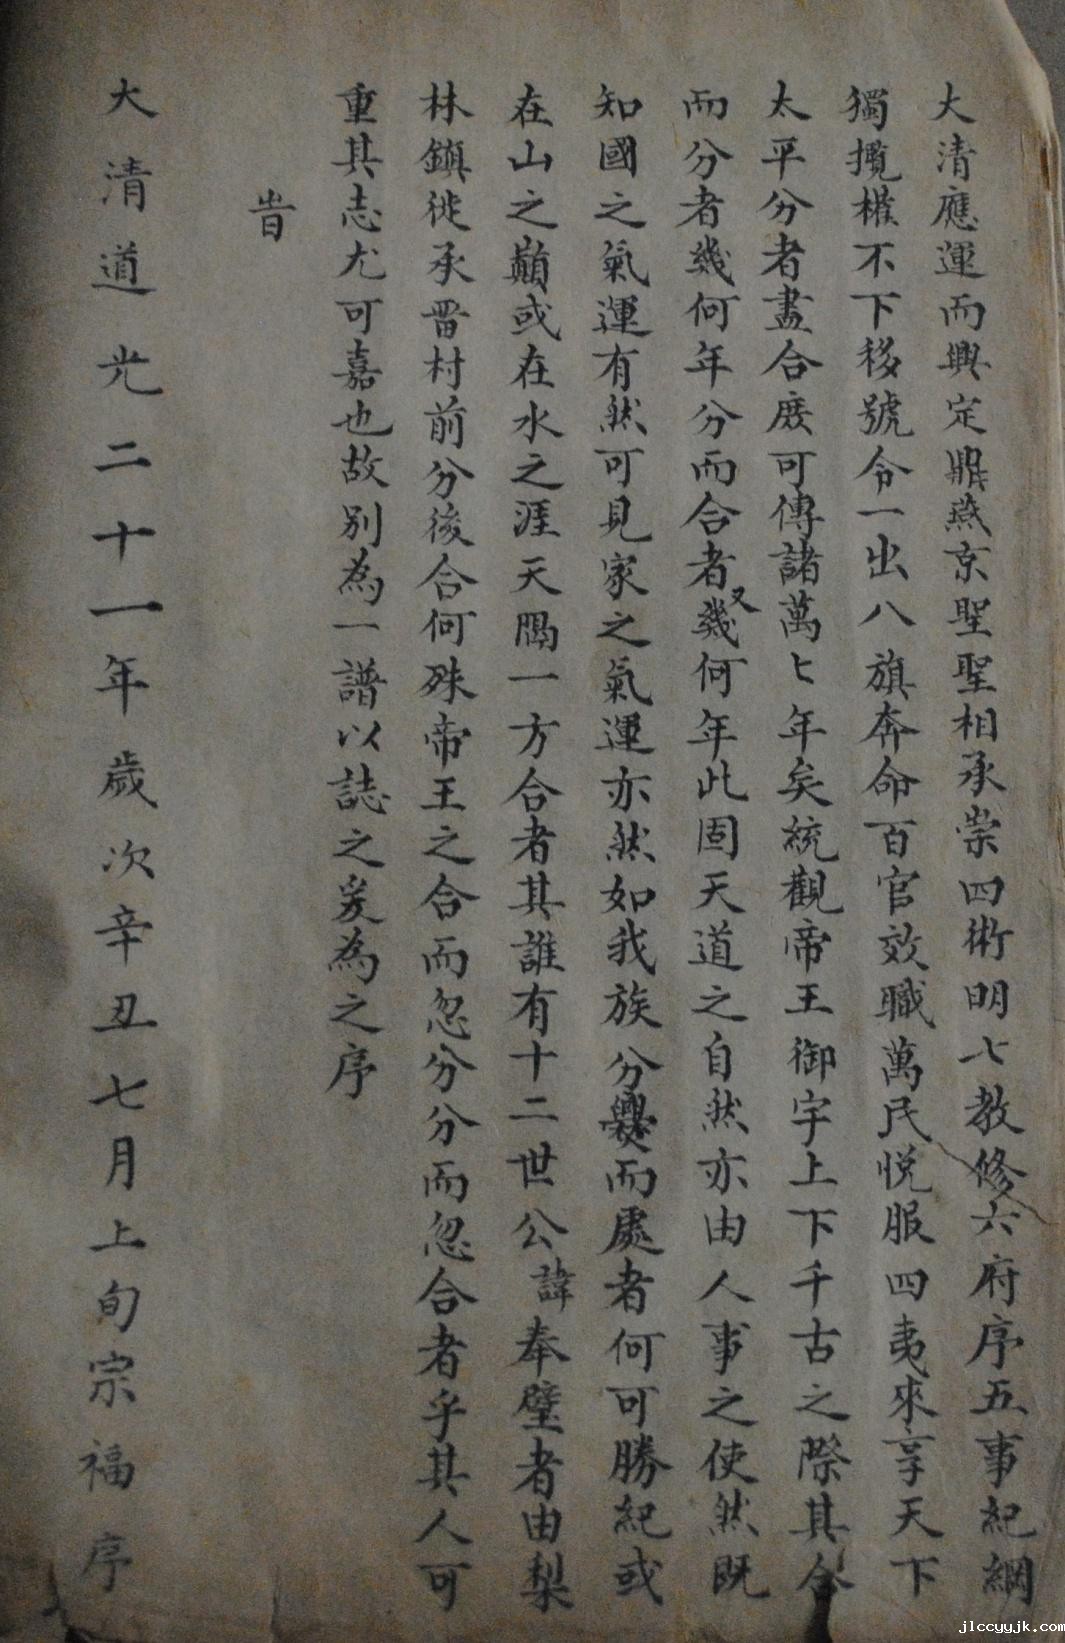 大清應運而興定鼎燕京聖聖相承崇四術明七教修六府序五事紀綱
獨攬權不下移號令一出八旗奔命百官效職萬民悅服四夷來享天下
太平分者盡合庶可傳諸萬匕年矣統觀帝王御宇上下千古之際其合
而分者幾何年分而合者又幾何年此固天道之自然亦由人事之使然既
知國之氣運有然可見家之氣運亦然如我族分爨而處者何可勝紀或
在山之巔或在水之涯天隔一方合者其誰有十二世公諱奉璧者由梨
林鎮徙承晋村前分後合何殊帝王之合而忽分分而忽合者乎其人可
重其志尤可嘉也故別為一譜以誌之爰為之序
旹
大清道光二十一年歲次辛丑七月上旬宗福序
jlccyyjk.com